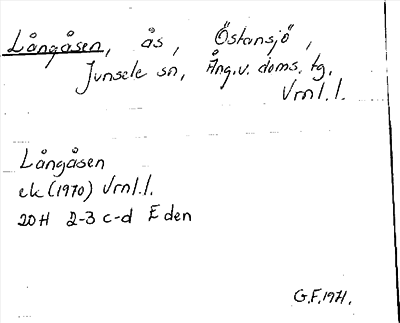 Långåsen, ås, Östansjö,
Junsele sn, Ång.v. doms. tg.
Vrnl.l.
Långåsen
ek (1970) Vrnl.l.
20H 2-3 c-d Eden
G.F. 1971.